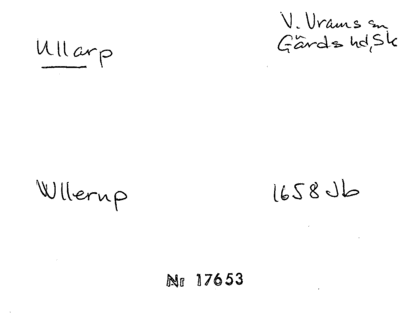 Ullarp
V. Vrams sn
Gärds hd, Sk
Wllerup
1658 Jb
Nr 17653